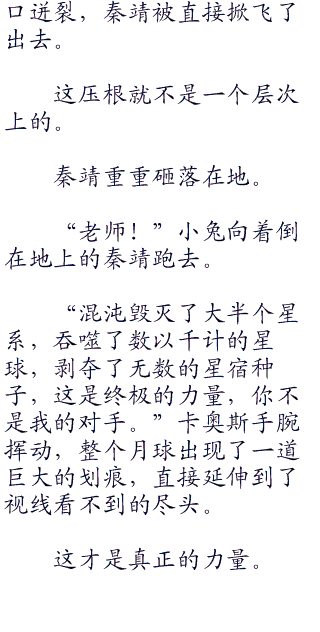 口迸裂，秦靖被直接掀飞了
出去。
这压根就不是一个层次
上的。
秦靖重重砸落在地。
“老师！”小兔向着倒
在地上的秦靖跑去。
“混沌毁灭了大半个星
系，吞噬了数以千计的星
球，剥夺了无数的星宿种
子，这是终极的力量，你不
是我的对手。”卡奥斯手腕
挥动，整个月球出现了一道
巨大的划痕，直接延伸到了
视线看不到的尽头。
这才是真正的力量。